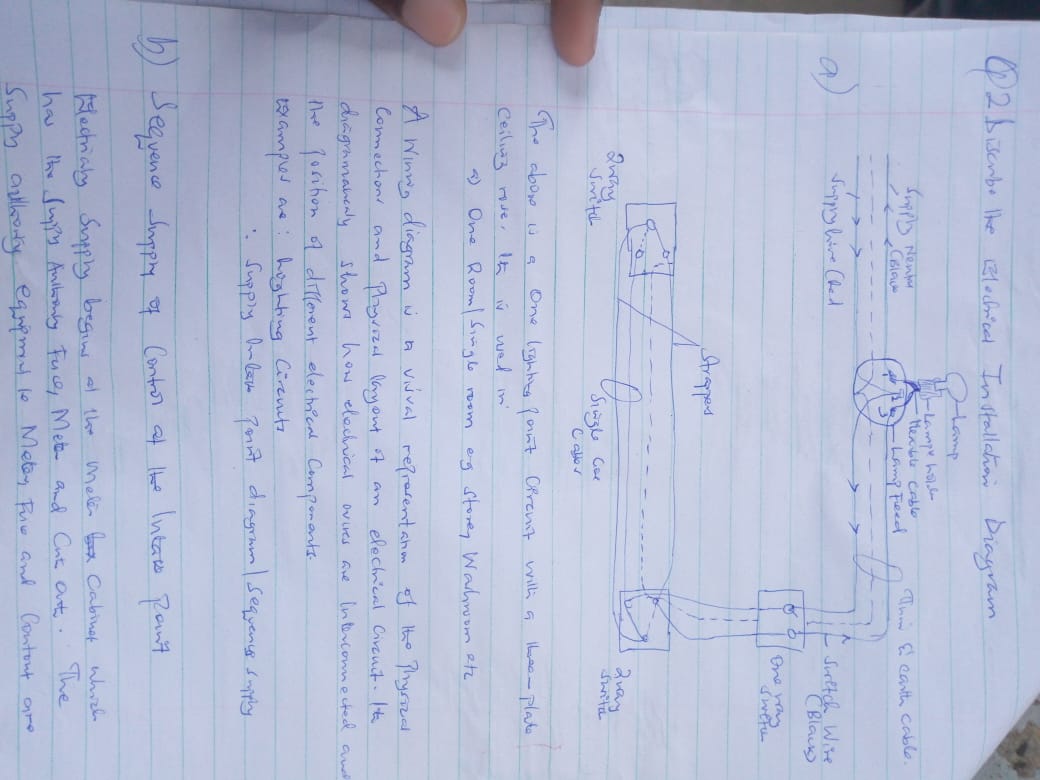 Q2 Describe the Electrical Installation Diagram
a)
Lamp
Lamp holder
flexible cable
Lamp Feed
Twin & earth cable.
Supply Neutral
(Black)
Supply Live (Red)
Switch Wire
(Black)
One way
Switch
Strapped
Single Core
Cables
2way
Switch
2way
Switch
The above is a One lighting point Circuit with a three-plate
Ceiling rose. It is used in
a) One Room/Single room eg Store, Washroom etc
A Wiring diagram is a visual representation of the Physical
Connection and Physical layout of an electrical Circuit. It
diagramatically shows how electrical wires are Interconnected and
the position of different electrical Components.
Examples are: Lighting Circuits
: Supply Intake Point diagram/Sequence Supply
b) Sequence Supply of Control at the Intake Point
Electricity Supply begins at the Meter Cabinet which
has the Supply Authority Fuse, Meter and Cut out. The
Supply authority equipment ie Meter, Fuse and Cutout are